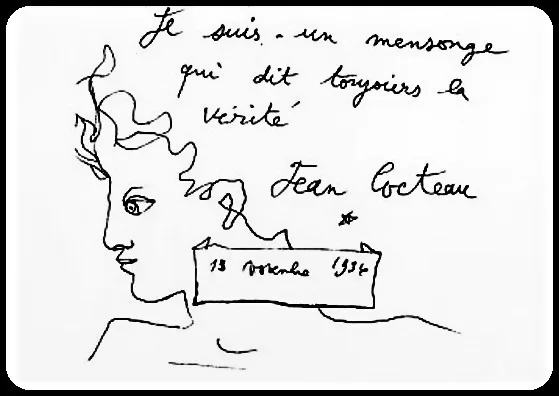 Je suis - un mensonge
qui dit toujours la
vérité
Jean Cocteau
13 novembre 1934